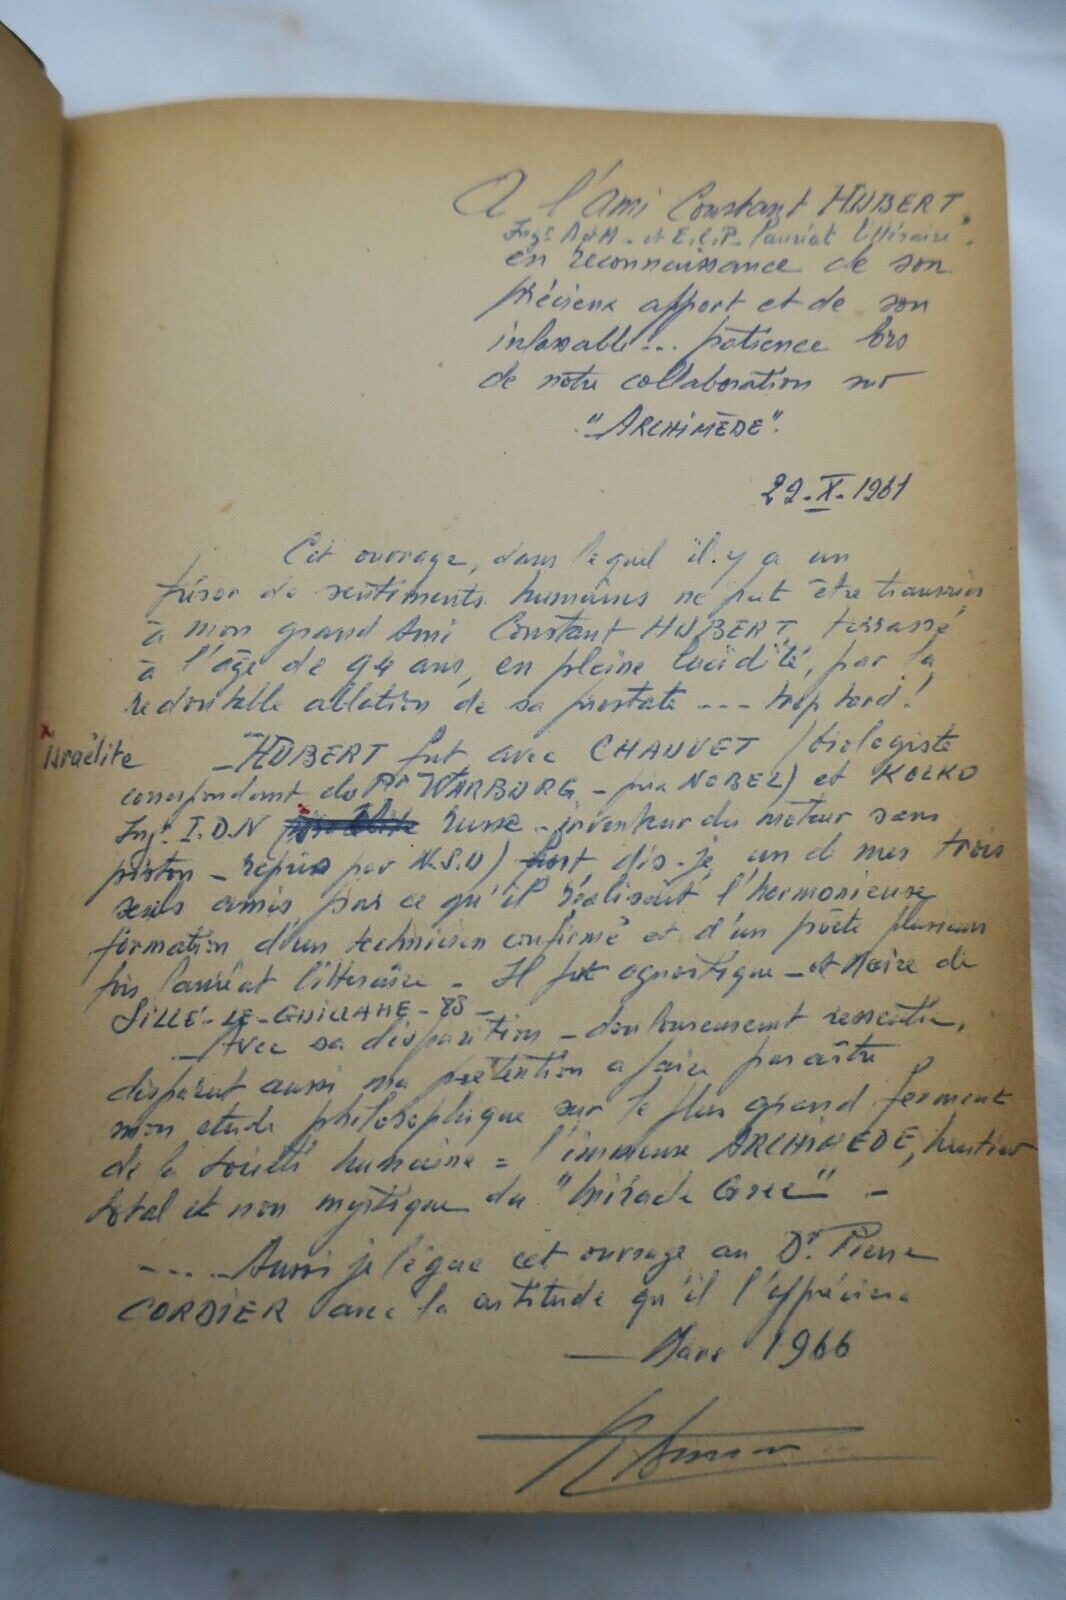 A l'Ami Constant HUBERT.
Ingr A et M - et E.C.P. lauréat littéraire.
en reconnaissance de son
précieux apport et de son
inlassable... patience lors
de notre collaboration sur
"ARCHIMÈDE".
29-X-1961
Cet ouvrage, dans lequel il y a un
trésor de sentiments humains ne put être transmis
à mon grand Ami Constant HUBERT, terrassé
à l'âge de 94 ans, en pleine lucidité, par la
redoutable ablation de sa prostate --- trop tard!
israélite
- HUBERT fut, avec CHAUVET (biologiste
correspondant du Pr WARBURG - prix NOBEL) et KOLKO
Ingr. I.D.N russe - inventeur du moteur sans
piston - repris par N.S.U) dis-je, un d mes trois
seuls amis, par ce qu'il réalisait l'harmonieuse
formation d'un technicien confirmé et d'un poète plusieurs
fois lauréat littéraire - Il fut agnostique - et Maire de
SILLÉ-LE-GUILLAME -
- Avec sa disparition - douloureusement ressentie,
disparut aussi ma prétention a faire paraître
mon etude philosophique sur le plus grand ferment
de la société humaine = l'immense ARCHIMEDE, héritier
total et non mystique du "Miracle Grec" -
---- Aussi je lègue cet ouvrage au Dr. Pierre
CORDIER avec la certitude qu'il l'appréciera
- Mars 1966